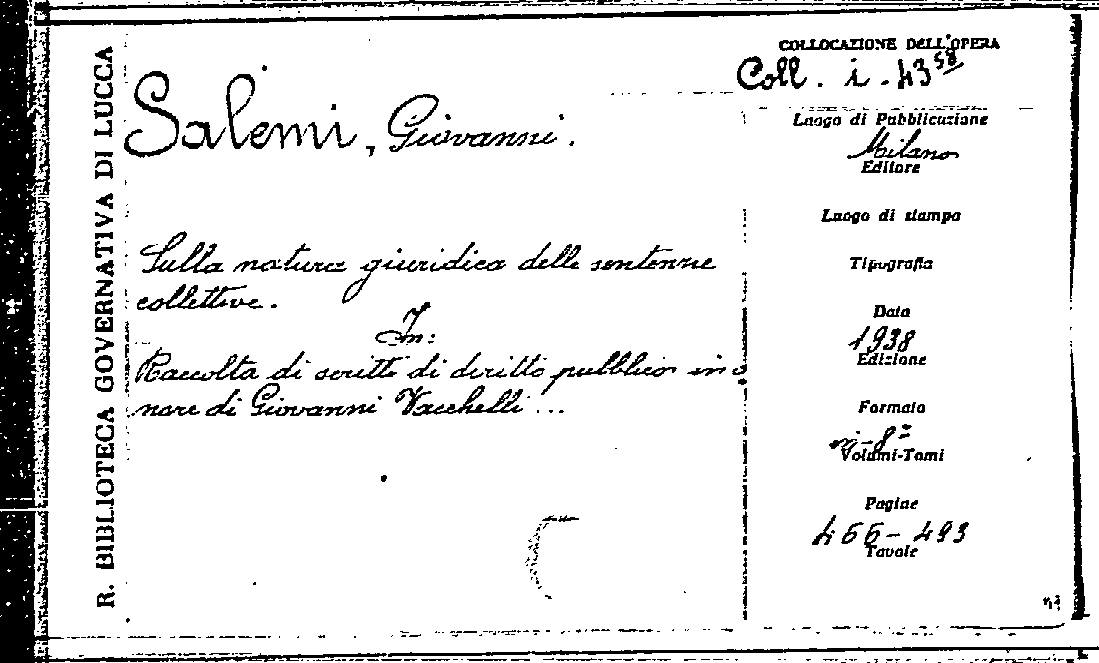 R. BIBLIOTECA GOVERNATIVA DI LUCCA
COLLOCAZIONE DELL'OPERA
Coll. i. 43 58
Salemi, Giovanni.
Sulla natura giuridica delle sentenze
collettive.
In:
Raccolta di scritti di diritto pubblico in o
nore di Giovanni Vacchelli ...
Luogo di Pubblicazione
Milano
Editore
Luogo di stampa
Tipografia
Data
1938
Edizione
Formato
in-8º
Volumi-Tomi
Pagine
466-493
Tavole